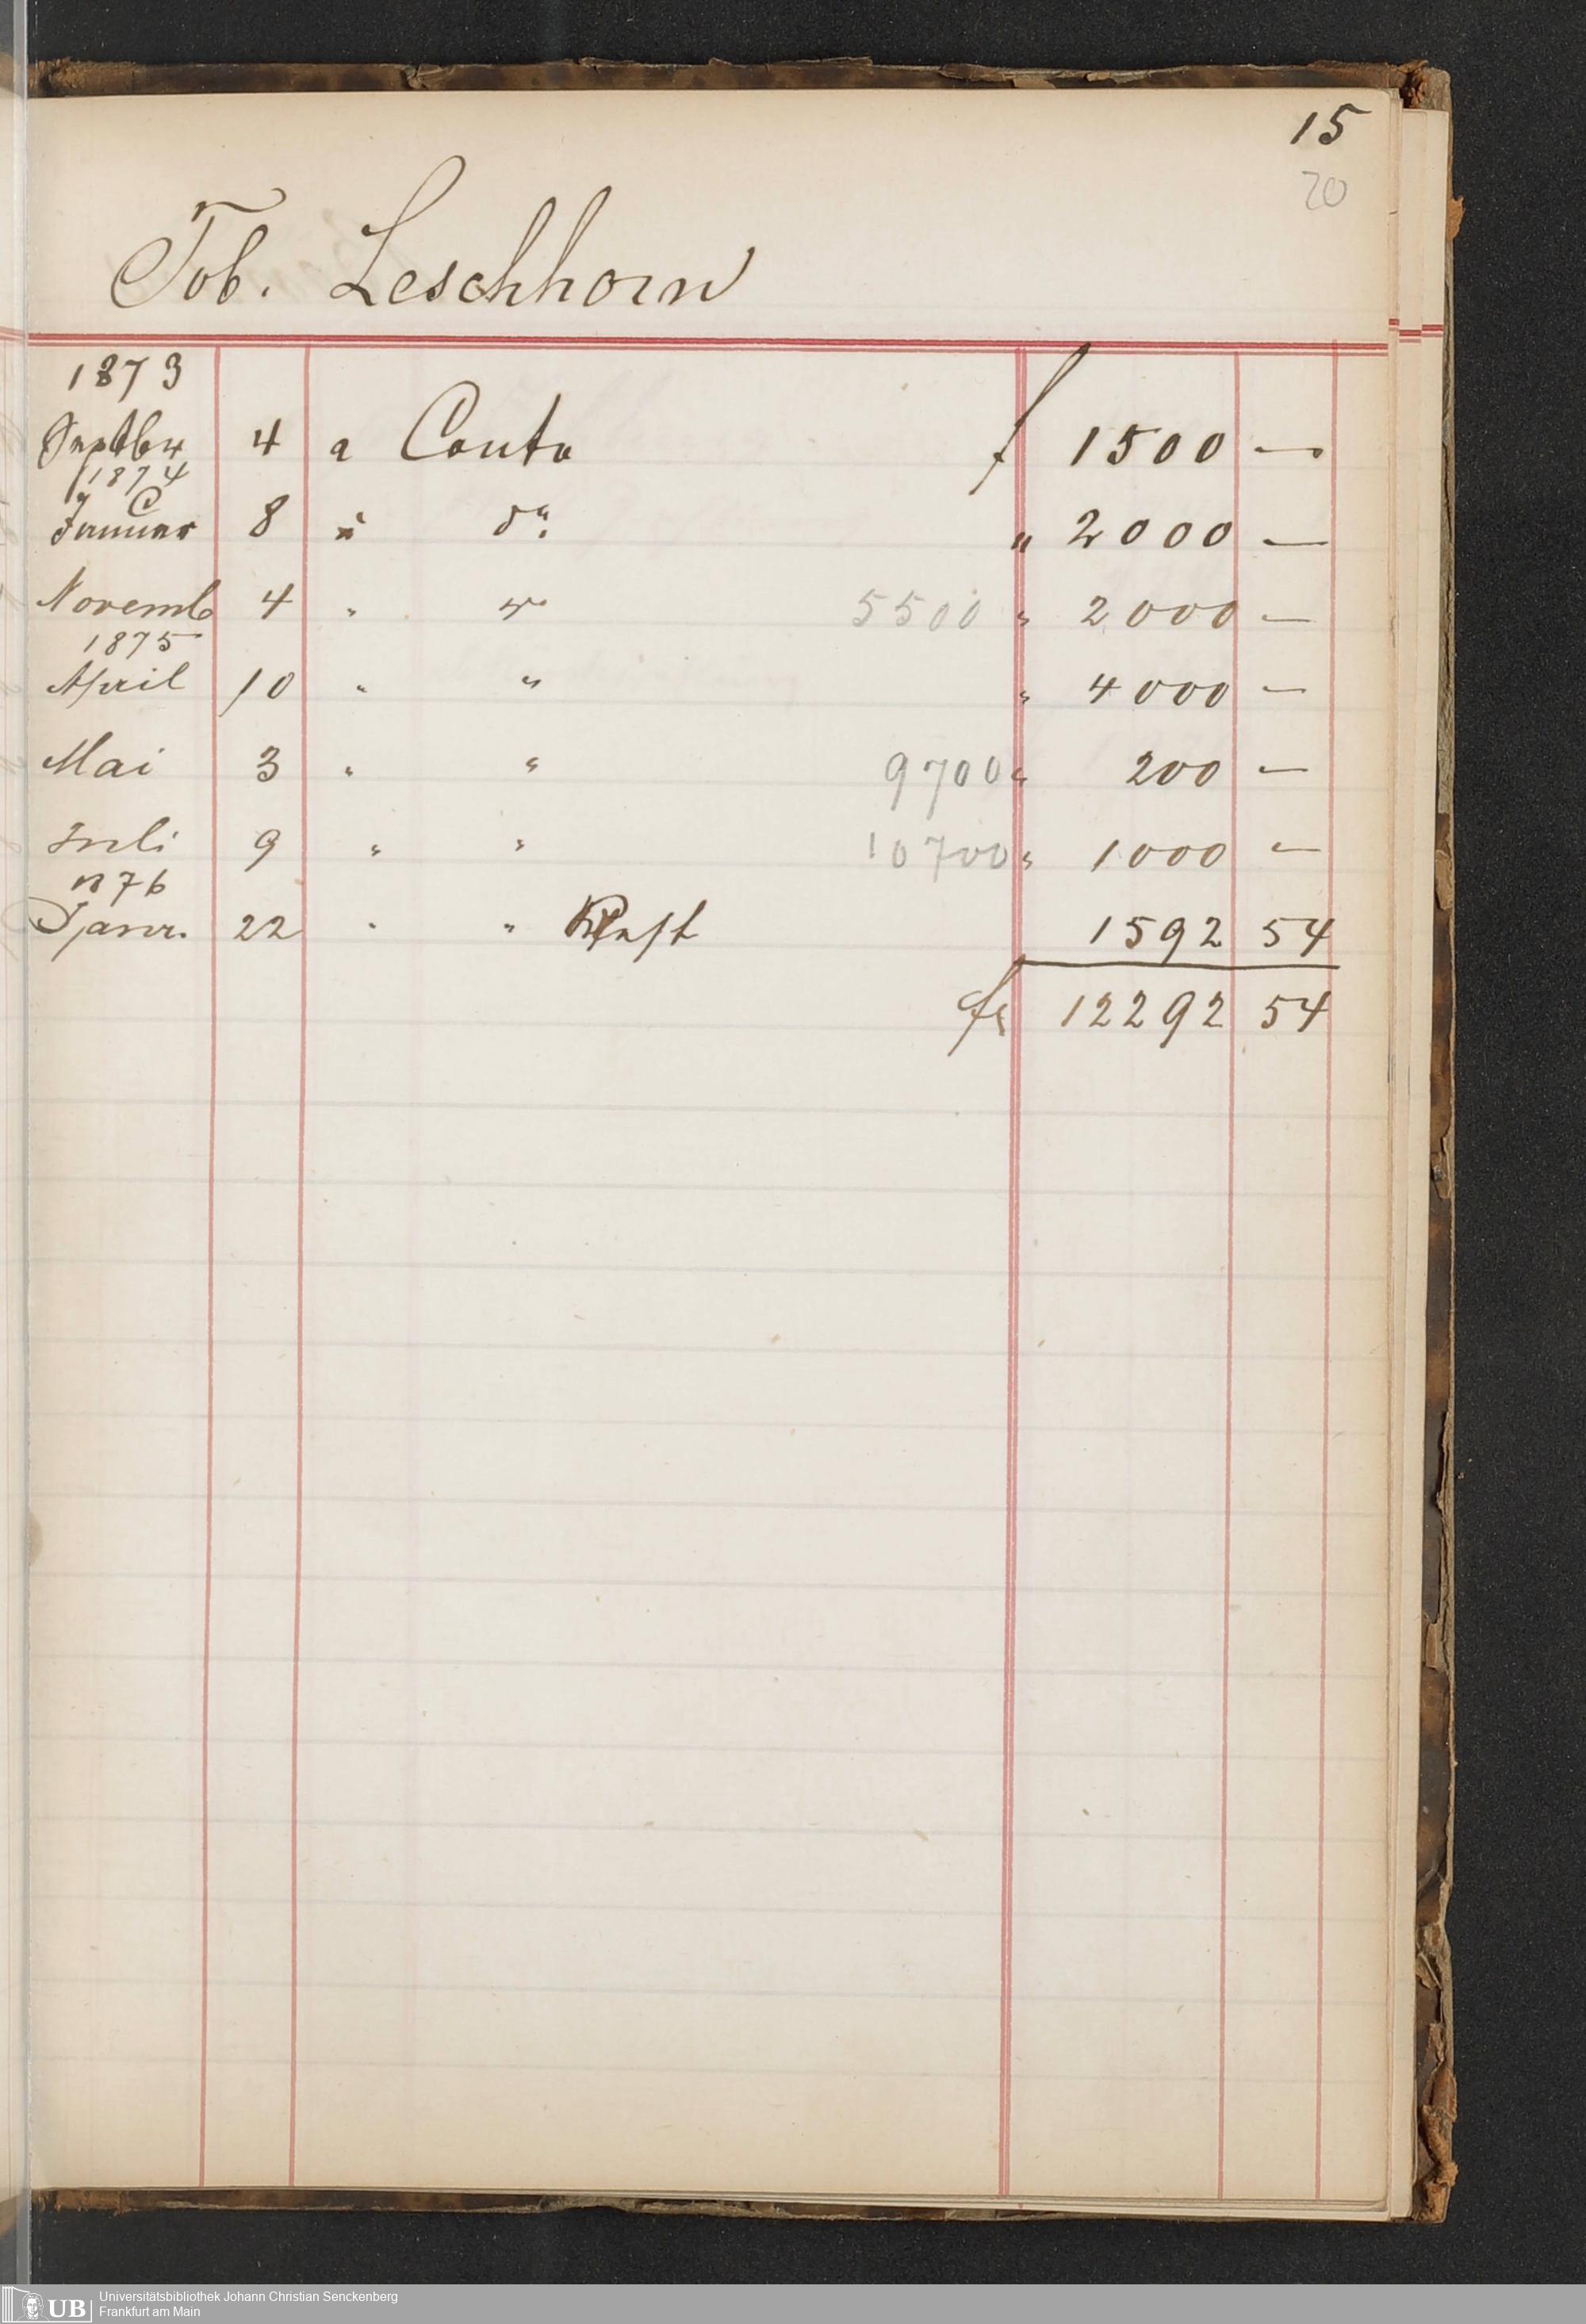 15
20
Tob. Leschhorn
1873
Septbr 4 a Conto f 1500 —
1874
Januar 8 a do. " 2000 —
Novemb 4 " " 5500 " 2000 —
1875
April 10 " " " 4000 —
Mai 3 " " 9700 " 200 —
Juli 9 " " 10700 " 1000 —
1876
Janr. 22 " " Rest 1592 54
fs 12292 54
UB Universitätsbibliothek Johann Christian Senckenberg
Frankfurt am Main